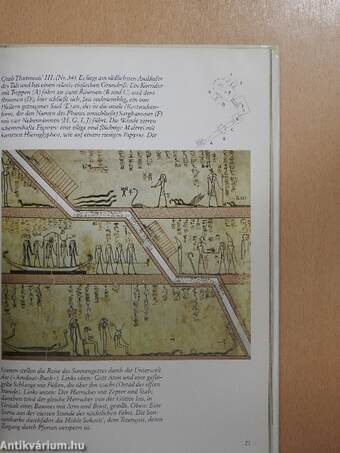 Grab Thutmosis' III. (Nr. 34). Es liegt am südlichsten Ausläufer
des Tals und hat einen relativ einfachen Grundriß: Ein Korridor
mit Treppen (A) führt zu zwei Räumen (B und C) und dem
Brunnen (D), hier schließt sich, fast rechtwinklig, ein von
Pfeilern gestützter Saal (E) an, der in die ovale (Kartuschen-
form, die den Namen des Pharao umschließt) Sargkammer (F)
mit vier Nebenräumen (H, G, I, J) führt. Die Wände zieren
schemenhafte Figuren: eine eilige und flüchtige Malerei mit
kursiven Hieroglyphen, wie auf einem riesigen Papyrus. Die
Szenen stellen die Reise des Sonnengottes durch die Unterwelt
dar (»Amduat-Buch«). Links oben: Gott Atum und eine geflü-
gelte Schlange mit Füßen, die über ihn wacht (Detail der elften
Stunde). Links unten: Der Herrscher mit Zepter und Stab;
daneben wird der gleiche Herrscher von der Göttin Isis, in
Gestalt eines Baumes mit Arm und Brust, gestillt. Oben: Eine
Szene aus der vierten Stunde der nächtlichen Fahrt. Die Son-
nenbarke durchfährt die Höhle Sokaris', dem Totengott, deren
Zugang durch Pforten versperrt ist.
antikvárium.hu